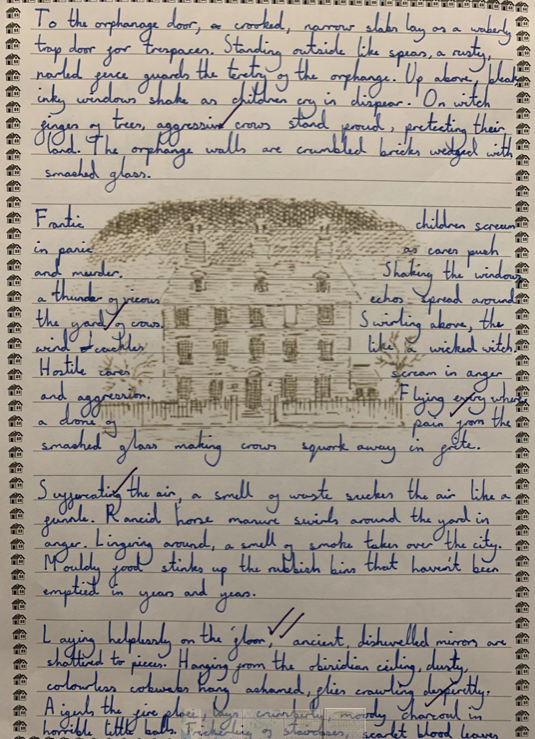 To the orphanage door, a crorked, narrow slabs lay as a waberly
trap door for trespaces. Standing outside like spears, a rusty,
narled fence guards the teretry of the orphange. Up above, bleak
inky windows shake as children cry in dispear. On witch
finger of trees, aggressive crows stand proud, pretecting their
land. The orphange walls are crumbled bricks wedged with
smashed glass.
Frantic children scream
in panic as cares push
and murder. Shaking the windows
a thunder of vicous echos spread around
the yard of crows. Swirling above, the
wind cackles like a wicked witch.
Hostile cares scream in anger
and aggression. Flying every where
a drone of pain from the
smashed glass making crows squork away in frite.
Suffercating the air, a smell of waste suckes the air like a
funnle. Rancid horse manure swirls around the yard in
anger. Lingering around, a smell of smoke takes over the city.
Mouldy food stinks up the rubbish bins that haven't been
emptied in years and years.
Laying helplessly on the floor, ancient, dishevelled mirrors are
shattred to pieces. Hanging from the obisidian ceiling, dusty,
colourless cobwebs hang ashamed, flies crawling despertly.
the fire place, lays crumberly, moody charcoal in
horrible little balls. of staircases, scarlet blood leaves